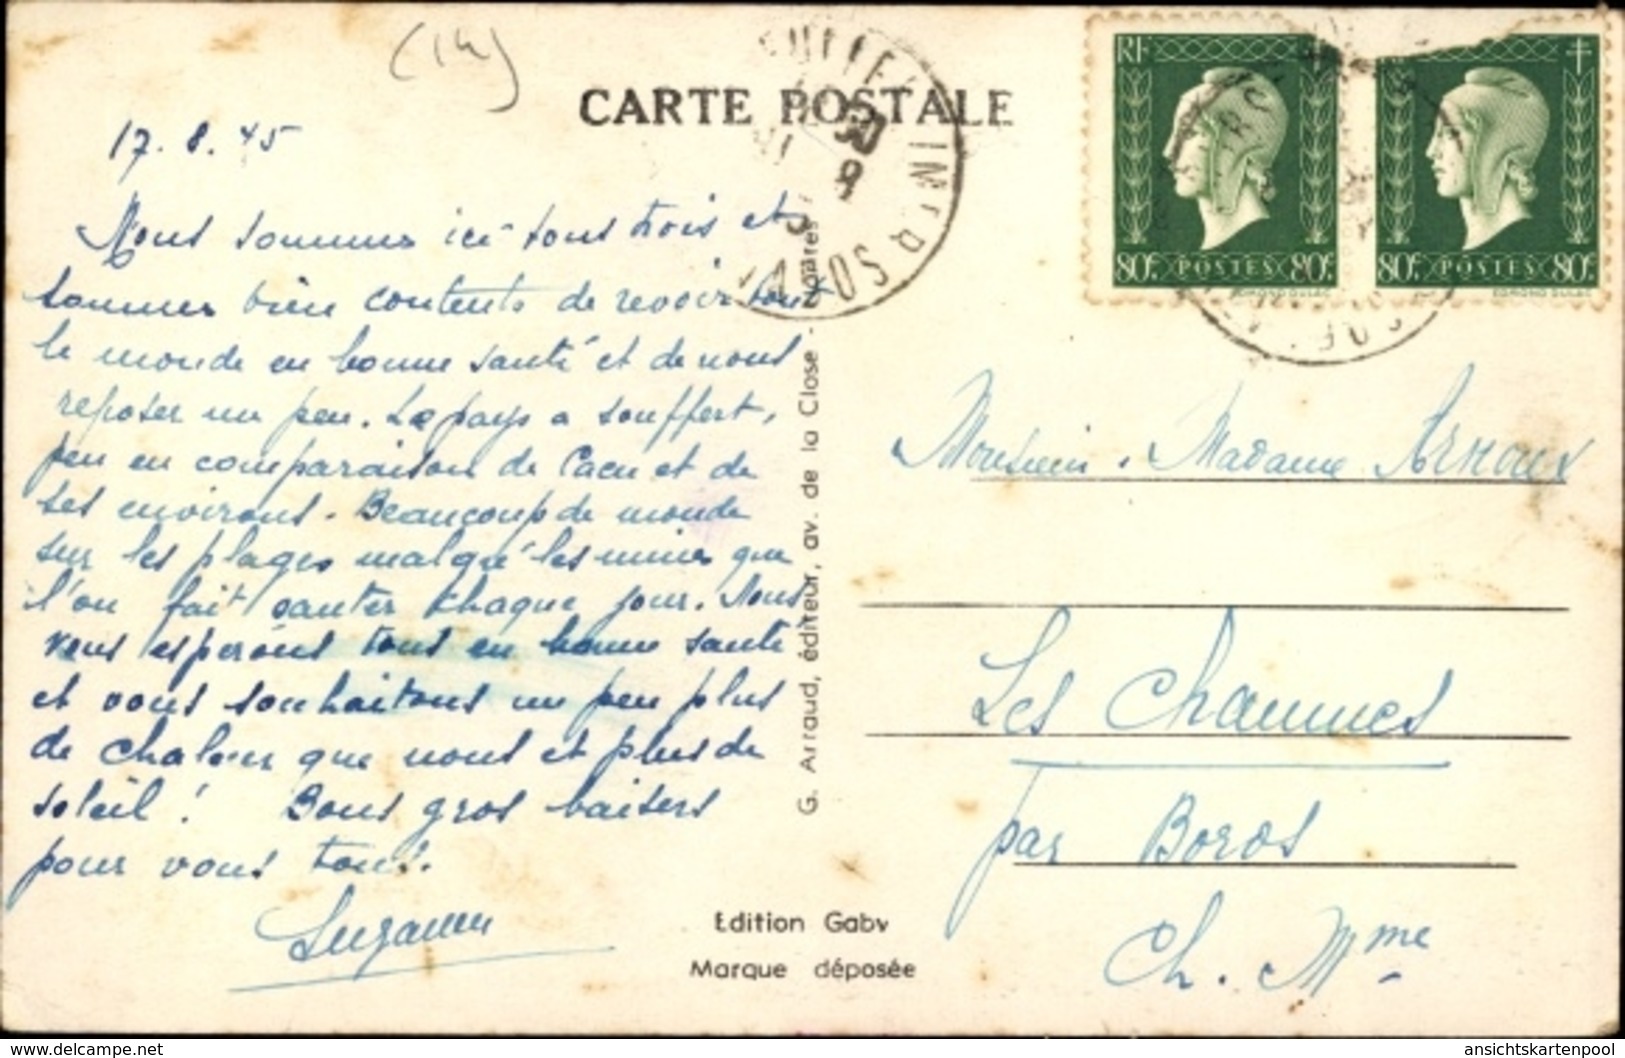 (14)
CARTE POSTALE
17.8.45
Nous sommes ici tous trois et
sommes bien contents de revoir tout
le monde en bonne santé et de nous
reposer un peu. Le pays a souffert,
peu en comparaison de Caen et de
ses environs. Beaucoup de monde
sur les plages malgré les mines que
l'on fait sauter chaque jour. Nous
vous espérons tous en bonne santé
et vous souhaitons un peu plus
de chaleur que nous et plus de
soleil! Bons gros baisers
pour vous tous.
Suzanne
G. Arraud, éditeur, av. de la Close -
Edition Gaby
Marque déposée
RF
80c. POSTES 80c.
80c. POSTES 80c.
EDMOND DULAC
EDMOND DULAC
Monsieur. Madame Arnoux
Les Chaumes
par Boros
Ch. Mme
ansichtskartenpool
https://www.delcampe.net